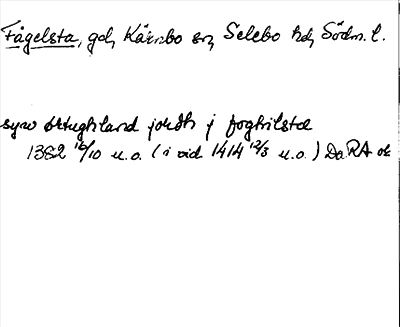 Fågelsta, gd, Kärnbo sn, Selebo hd, Södm. l.
syw ørtughland jordh j foghilstæ
1382 16/10 u.o. (i vid. 1414 12/3 u.o.) Da. RA or